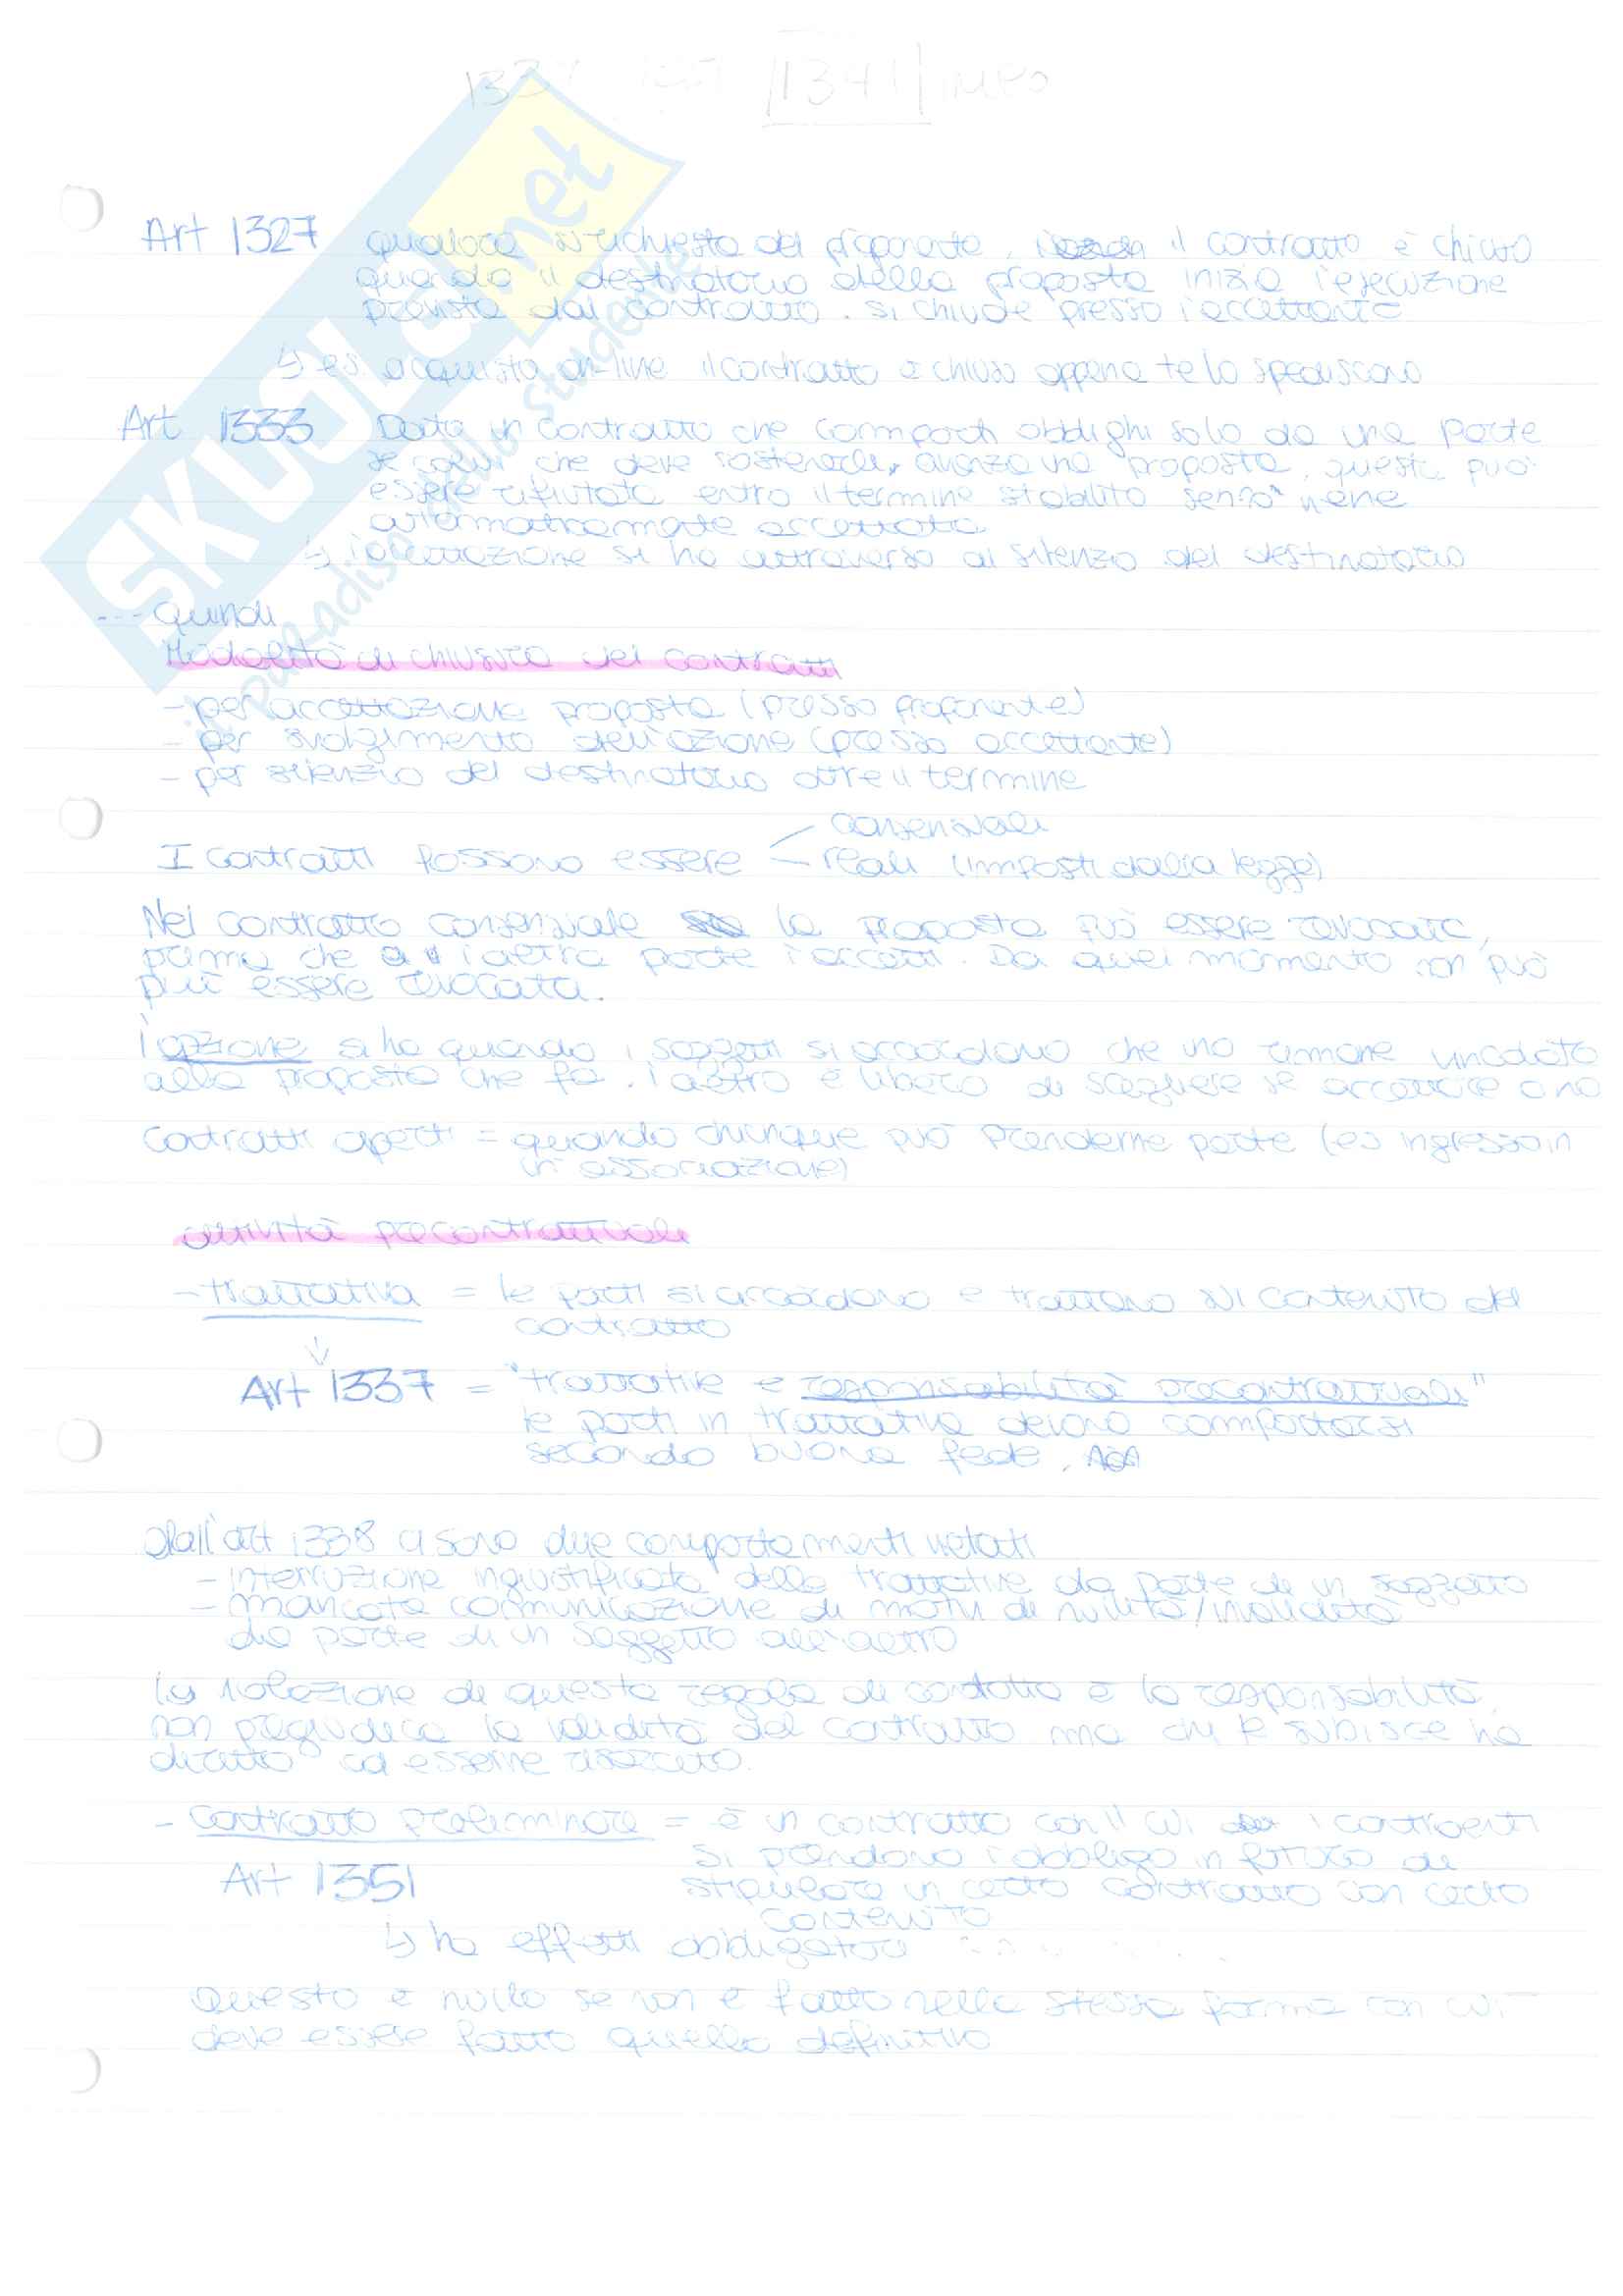 1337 1341 IMPO
SKUOLA.net
il paradiso dello studente
Art 1327 qualora su richiesta del proponente, il contratto è chiuso
quando il destinatario della proposta inizia l'esecuzione
prevista dal contratto. si chiude presso l'accettante
↳ es. acquisto on-line il contratto è chiuso appena te lo spediscono
Art 1333 Dato un contratto che comporti obblighi solo da una parte
se colui che deve sostenerli, avanza una proposta, questa può
essere rifiutata entro il termine stabilito senno' viene
automaticamente accettata
↳ l'accettazione si ha attraverso al silenzio del destinatario
--- quindi
Modalità di chiusura dei contratti
- per accettazione proposta (presso proponente)
- per svolgimento dell'azione (presso accettante)
- per silenzio del destinatario oltre il termine
consensuali
I contratti possono essere reali (imposti dalla legge)
Nel contratto consensuale la proposta può essere revocata,
prima che l'altra parte l'accetti. Da quel momento non può
più essere revocata.
l'opzione si ha quando i soggetti si accordano che uno rimane vincolato
alla proposta che fa. l'altro è libero di scegliere se accettare o no
Contratti aperti = quando chiunque può prenderne parte (es ingresso in
un associazione)
attività precontrattuali
- trattativa = le parti si accordano e trattano sul contenuto del
contratto
↓
Art 1337 = "trattative e responsabilità precontrattuali"
le parti in trattativa devono comportarsi
secondo buona fede.
dall'art 1338 ci sono due comportamenti vietati
- interruzione ingiustificata delle trattative da parte di un soggetto
- mancata comunicazione di motivi di nullità/invalidità
da parte di un soggetto all'altro
la violazione di questa regola di condotta e la responsabilità
non pregiudica la validità del contratto ma chi le subisce ha
diritto ad esserne risarcito.
- Contratto preliminare = è un contratto con il cui i contraenti
si prendono l'obbligo in futuro di
Art 1351 stipulare un certo contratto con certo
contenuto
↳ ha effetti obbligatori
Questo è nullo se non è fatto nella stessa forma con cui
deve essere fatto quello definitivo